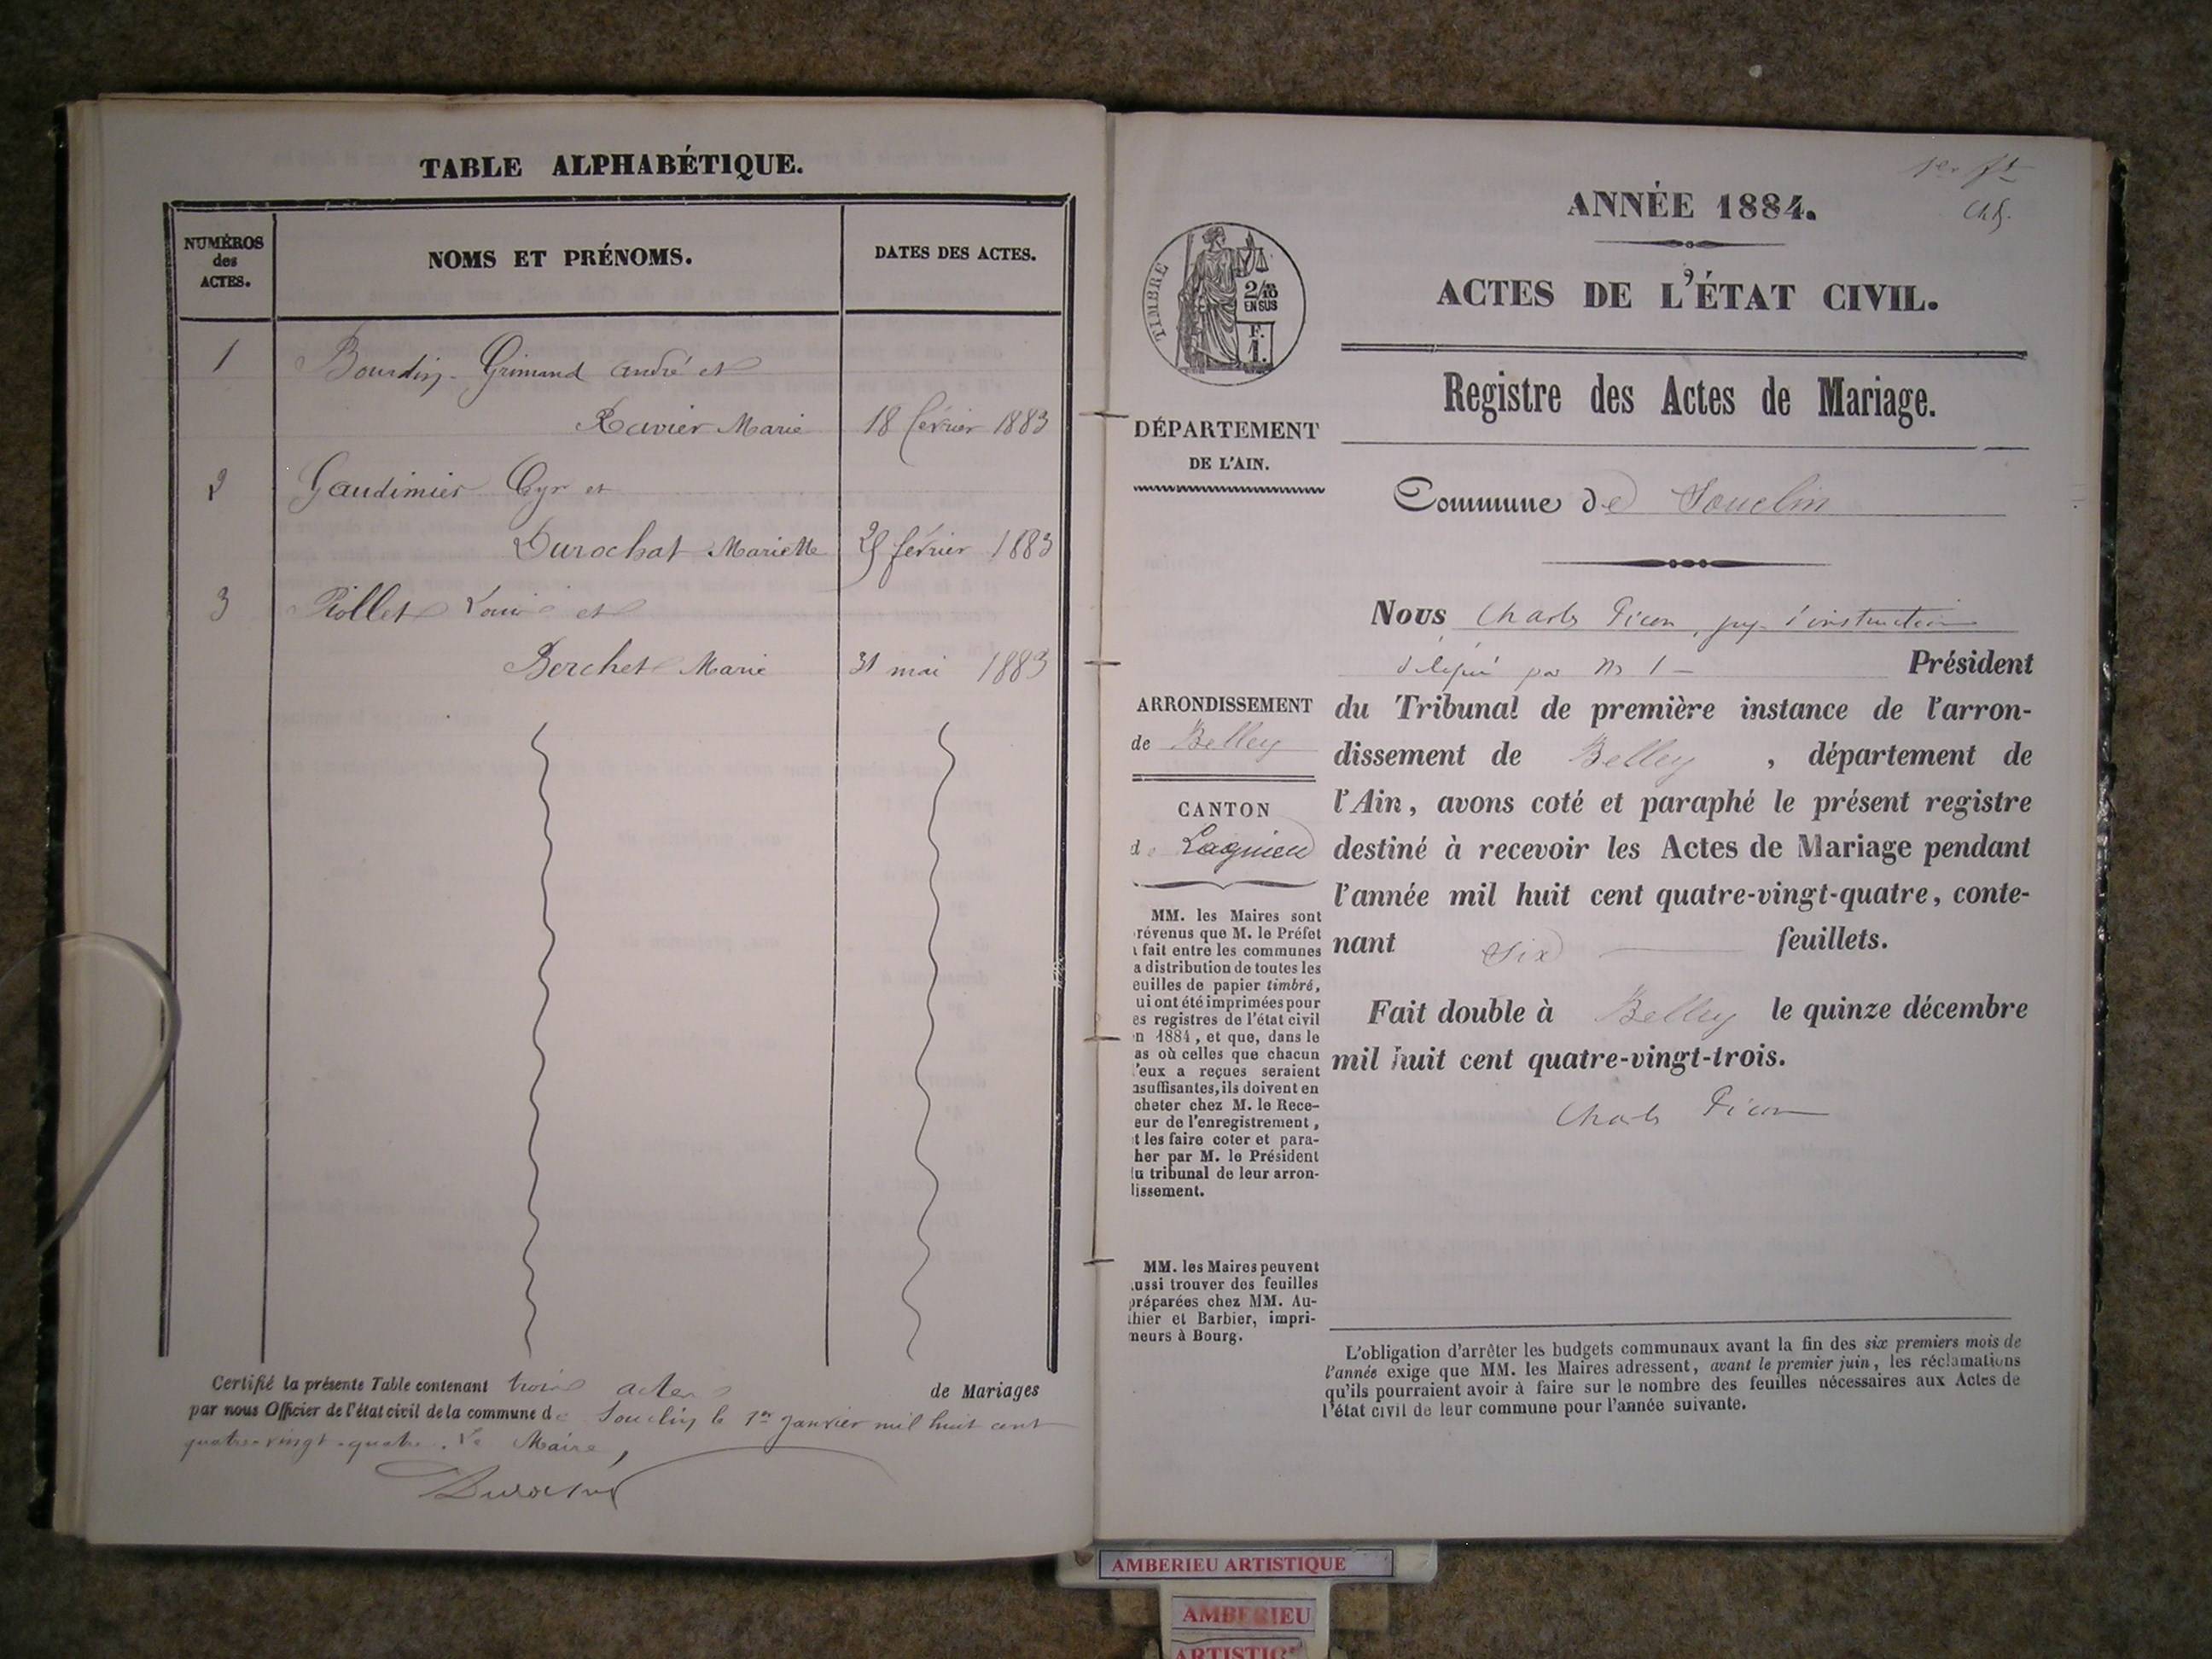 TABLE ALPHABÉTIQUE.
NUMÉROS
des
ACTES.
NOMS ET PRÉNOMS.
DATES DES ACTES.
1 Bourdin-Grimaud André et
Ravier Marie 18 février 1883
2 Gaudimier Cyr et
Durochat Mariette février 1883
3 Piollet Louis et
Berchet Marie 31 mai 1883
Certifié la présente Table contenant trois actes de Mariages
par nous Officier de l'état civil de la commune de Souclin le 1er janvier mil huit cent
quatre-vingt-quatre. Le Maire,
1er ft
ANNÉE 1884.
ACTES DE L'ÉTAT CIVIL.
Registre des Actes de Mariage.
TIMBRE
2/10
EN SUS
F.
1.
DÉPARTEMENT
DE L'AIN.
Commune de Souclin
Nous Charles Picon, juge d'instruction
délégué par Mr l Président
du Tribunal de première instance de l'arron-
dissement de Belley, département de
l'Ain, avons coté et paraphé le présent registre
destiné à recevoir les Actes de Mariage pendant
l'année mil huit cent quatre-vingt-quatre, conte-
nant six feuillets.
Fait double à Belley le quinze décembre
mil huit cent quatre-vingt-trois.
Charles Picon
ARRONDISSEMENT
de Belley
CANTON
d Lagnieu
MM. les Maires sont
révenus que M. le Préfet
fait entre les communes
a distribution de toutes les
euilles de papier timbré,
ui ont été imprimées pour
es registres de l'état civil
n 1884, et que, dans le
as où celles que chacun
'eux a reçues seraient
suffisantes, ils doivent en
cheter chez M. le Rece-
eur de l'enregistrement,
t les faire coter et para-
her par M. le Président
u tribunal de leur arron-
lissement.
MM. les Maires peuvent
ussi trouver des feuilles
préparées chez MM. Au-
thier et Barbier, impri-
meurs à Bourg.
L'obligation d'arrêter les budgets communaux avant la fin des six premiers mois de
l'année exige que MM. les Maires adressent, avant le premier juin, les réclamations
qu'ils pourraient avoir à faire sur le nombre des feuilles nécessaires aux Actes de
l'état civil de leur commune pour l'année suivante.
AMBERIEU ARTISTIQUE
AMBERIEU
ARTISTIQ